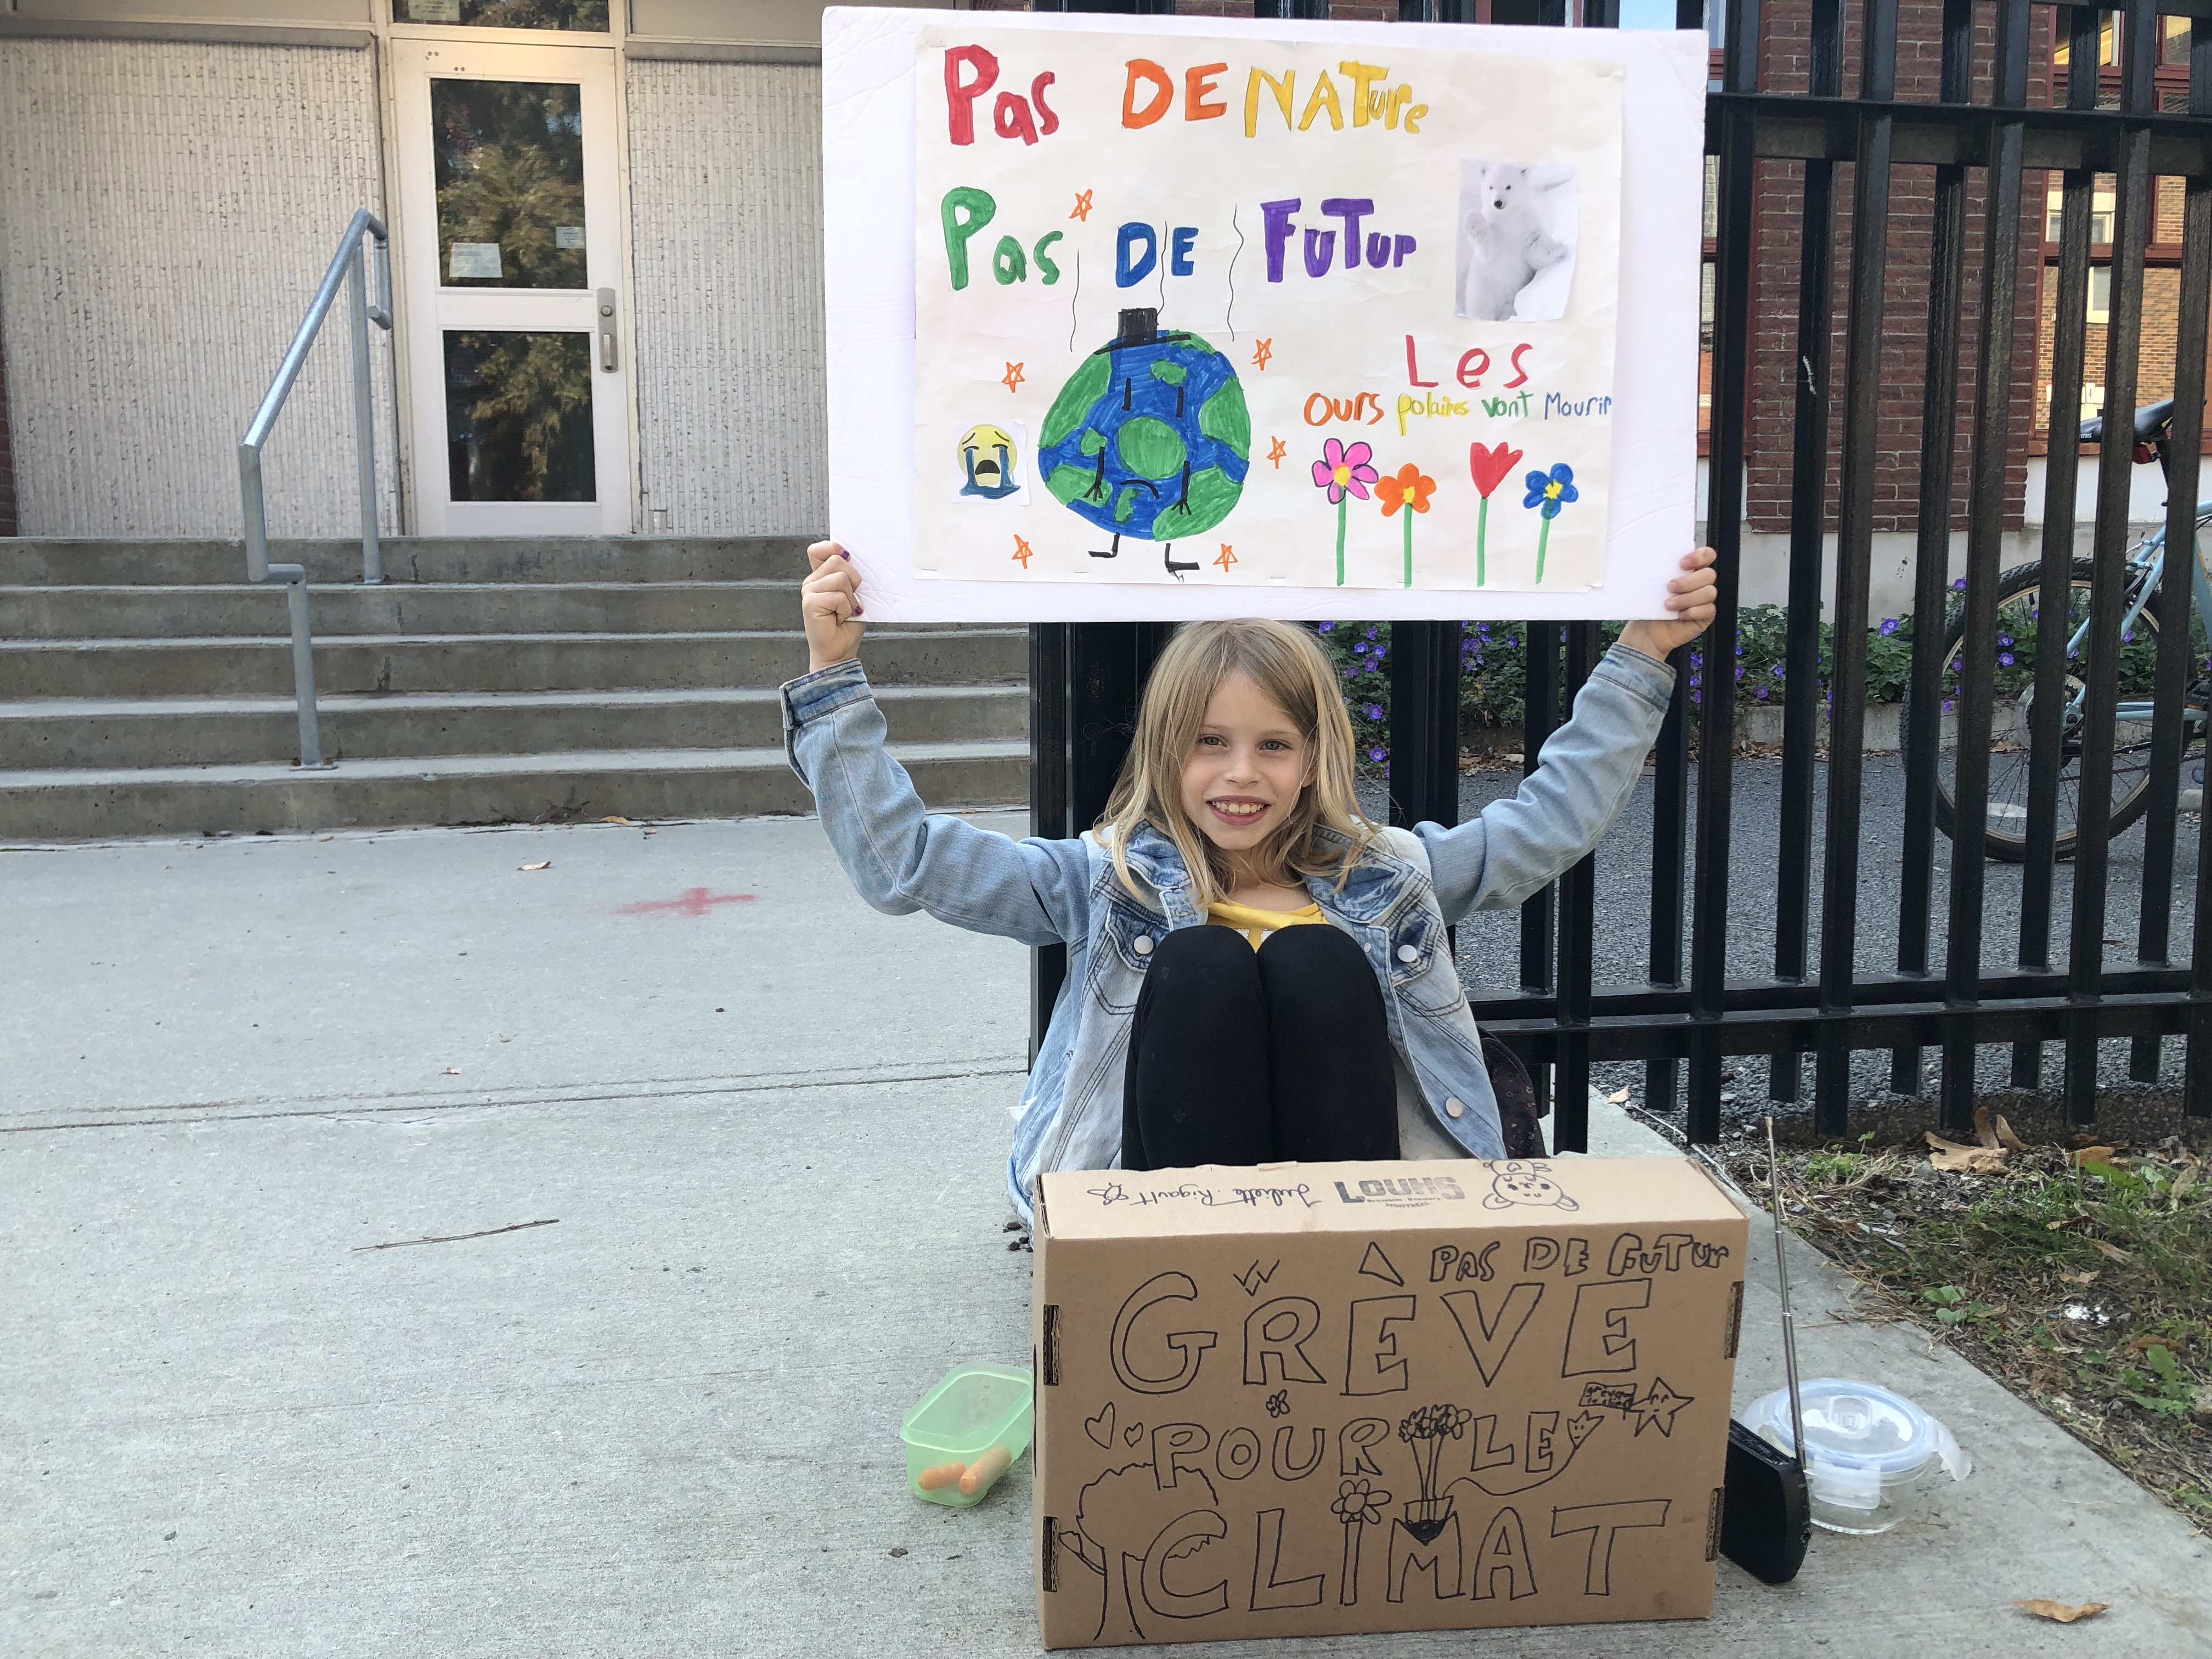 Pas DE NATure
Pas DE FuTur
Les
ours polaires vont Mourir
Juliette Rigault
LOUHS
MONTRÉAL
À PAS DE FUTUR
GRÈVE
POUR LE
CLIMAT